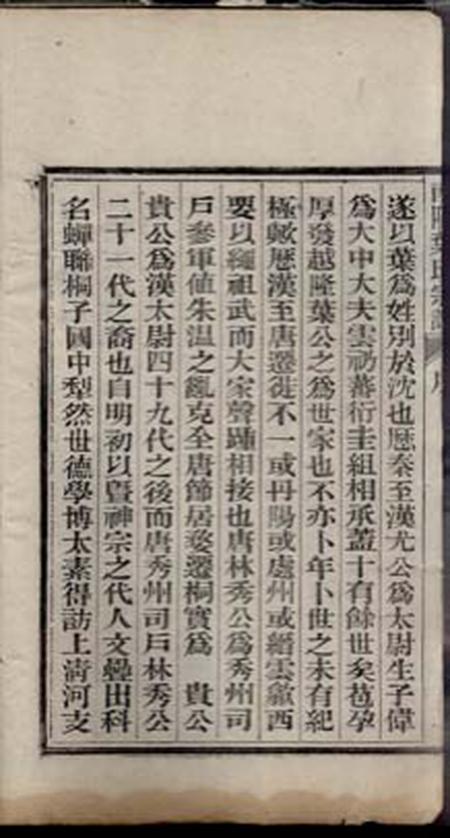 遂以葉爲姓别於沈也歷秦至漢尤公爲太尉生子偉
爲大中大夫雲礽蕃衍圭組相承葢十有餘世矣苞孕
厚發越隆葉公之爲世家也不亦卜年卜世之未有紀
極歟歷漢至唐遷徙不一或丹陽或處州或縉雲歙西
要以繩祖武而大家聲踵相接也唐林秀公爲秀州司
戶參軍值朱温之亂克全唐節居婺遷桐實爲 貴公
貴公爲漢太尉四十九代之後而唐秀州司戶林秀公
二十一代之裔也自明初以曁神宗之代人文疊出科
名蟬聯桐子國中犁然世德學博太素得訪上淸河支